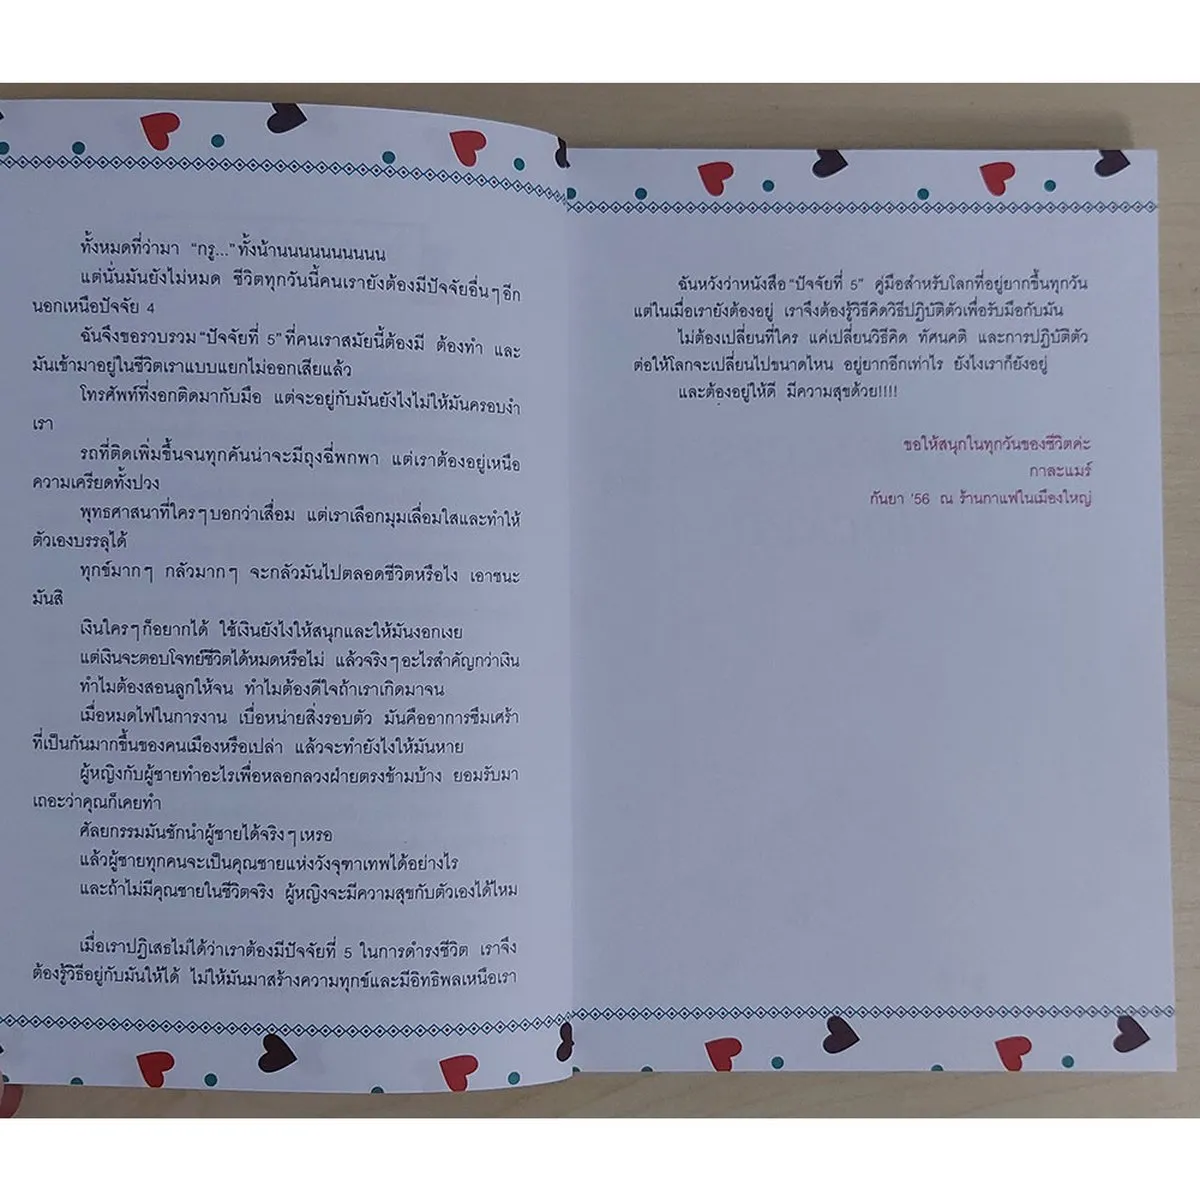 ทั้งหมดที่ว่ามา “กรู...”ทั้งน้านนนนนนนนนน
แต่นั่นมันยังไม่หมด ชีวิตทุกวันนี้คนเรายังต้องมีปัจจัยอื่นๆอีก
นอกเหนือปัจจัย 4
ฉันจึงขอรวบรวม “ปัจจัยที่ 5” ที่คนเราสมัยนี้ต้องมี ต้องทำ และ
มันเข้ามาอยู่ในชีวิตเราแบบแยกไม่ออกเสียแล้ว
โทรศัพท์ที่งอกติดมากับมือ แต่จะอยู่กับมันยังไงไม่ให้มันครอบงำ
เรา
รถที่ติดเพิ่มขึ้นจนทุกคันน่าจะมีถุงฉี่พกพา แต่เราต้องอยู่เหนือ
ความเครียดทั้งปวง
พุทธศาสนาที่ใครๆบอกว่าเสื่อม แต่เราเลือกมุมเลื่อมใสและทำให้
ตัวเองบรรลุได้
ทุกข์มากๆ กลัวมากๆ จะกลัวมันไปตลอดชีวิตหรือไง เอาชนะ
มันสิ
เงินใครๆก็อยากได้ ใช้เงินยังไงให้สนุกและให้มันงอกเงย
แต่เงินจะตอบโจทย์ชีวิตได้หมดหรือไม่ แล้วจริงๆอะไรสำคัญกว่าเงิน
ทำไมต้องสอนลูกให้จน ทำไมต้องดีใจถ้าเราเกิดมาจน
เมื่อหมดไฟในการงาน เบื่อหน่ายสิ่งรอบตัว มันคืออาการซึมเศร้า
ที่เป็นกันมากขึ้นของคนเมืองหรือเปล่า แล้วจะทำยังไงให้มันหาย
ผู้หญิงกับผู้ชายทำอะไรเพื่อหลอกลวงฝ่ายตรงข้ามบ้าง ยอมรับมา
เถอะว่าคุณก็เคยทำ
ศัลยกรรมมันชักนำผู้ชายได้จริงๆเหรอ
แล้วผู้ชายทุกคนจะเป็นคุณชายแห่งวังจุฑาเทพได้อย่างไร
และถ้าไม่มีคุณชายในชีวิตจริง ผู้หญิงจะมีความสุขกับตัวเองได้ไหม
เมื่อเราปฏิเสธไม่ได้ว่าเราต้องมีปัจจัยที่ 5 ในการดำรงชีวิต เราจึง
ต้องรู้วิธีอยู่กับมันให้ได้ ไม่ให้มันมาสร้างความทุกข์และมีอิทธิพลเหนือเรา
ฉันหวังว่าหนังสือ “ปัจจัยที่ 5” คู่มือสำหรับโลกที่อยู่ยากขึ้นทุกวัน
แต่ในเมื่อเรายังต้องอยู่ เราจึงต้องรู้วิธีคิดวิธีปฏิบัติตัวเพื่อรับมือกับมัน
ไม่ต้องเปลี่ยนที่ใคร แค่เปลี่ยนวิธีคิด ทัศนคติ และการปฏิบัติตัว
ต่อให้โลกจะเปลี่ยนไปขนาดไหน อยู่ยากอีกเท่าไร ยังไงเราก็ยังอยู่
และต้องอยู่ให้ดี มีความสุขด้วย!!!!
ขอให้สนุกในทุกวันของชีวิตค่ะ
กาละแมร์
กันยา ’56 ณ ร้านกาแฟในเมืองใหญ่